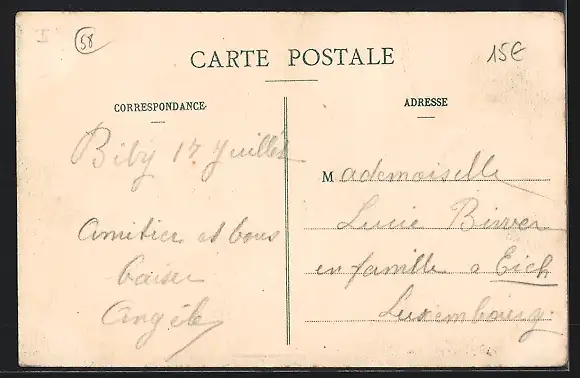 I
58
15€
CARTE POSTALE
CORRESPONDANCE
ADRESSE
Biby 17 Juillet
Amitier et bons
baiser
Angèle
Mademoiselle
Lucie Birver
en famille a Eich
Luxembourg.